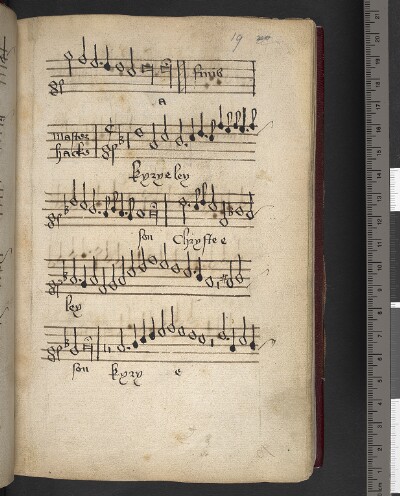 19
finis
A
master
hacke
kyrye ley
son Chryste e
ley
son kyry e